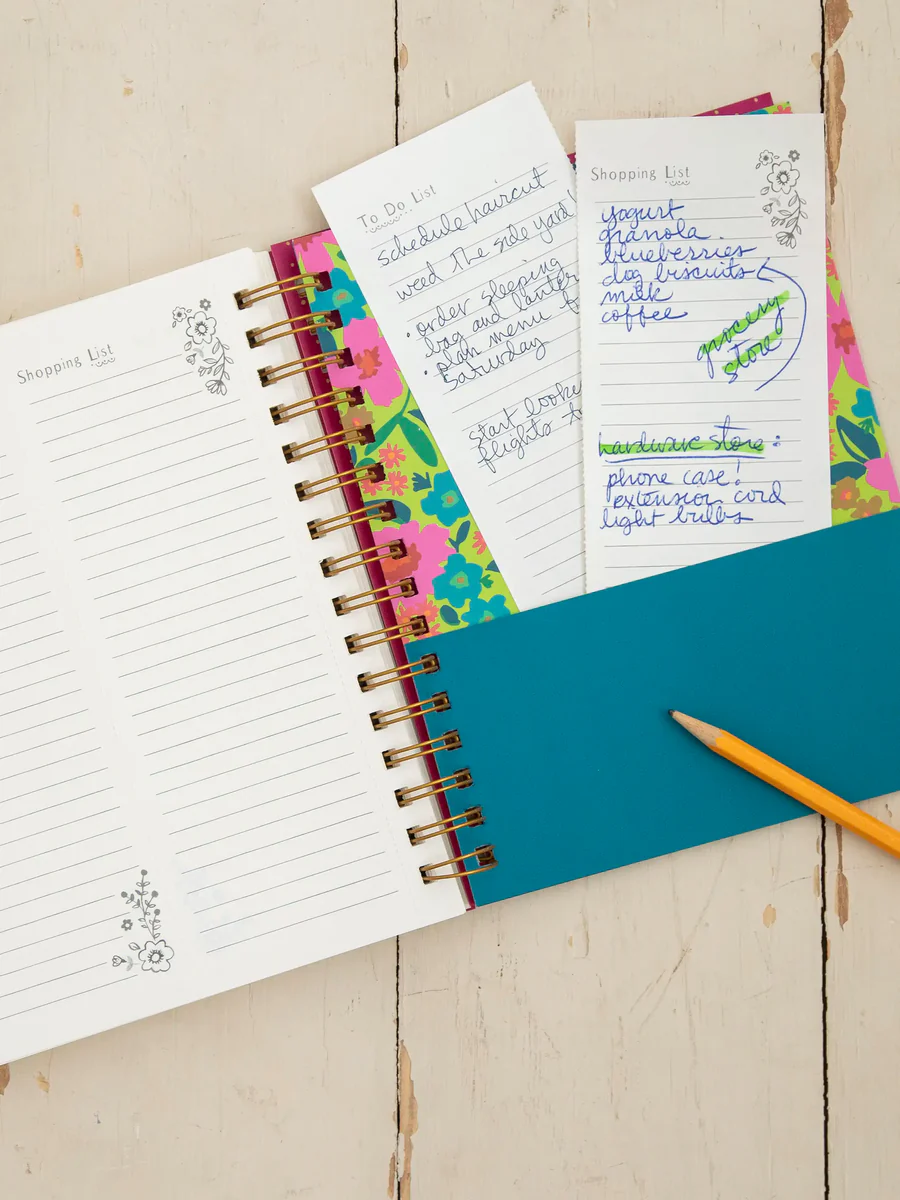 Shopping List
To Do List
schedule haircut
weed the side yard!
• order sleeping
bag and lantern
• plan menu
Saturday
start
flights
Shopping List
yogurt
granola.
blueberries
dog biscuits
milk
coffee
grocery
store
hardware store:
phone case!
extension cord
light bulbs